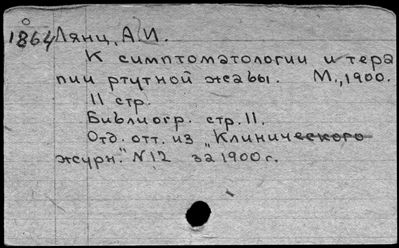 1864 Лянц, А.И.
К симптоматологии и тера
пии ртутной жабы. М., 1900.
11 стр.
Библиогр. стр. 11.
Отд. отт. из „Клинического
журн." N12 за 1900 г.